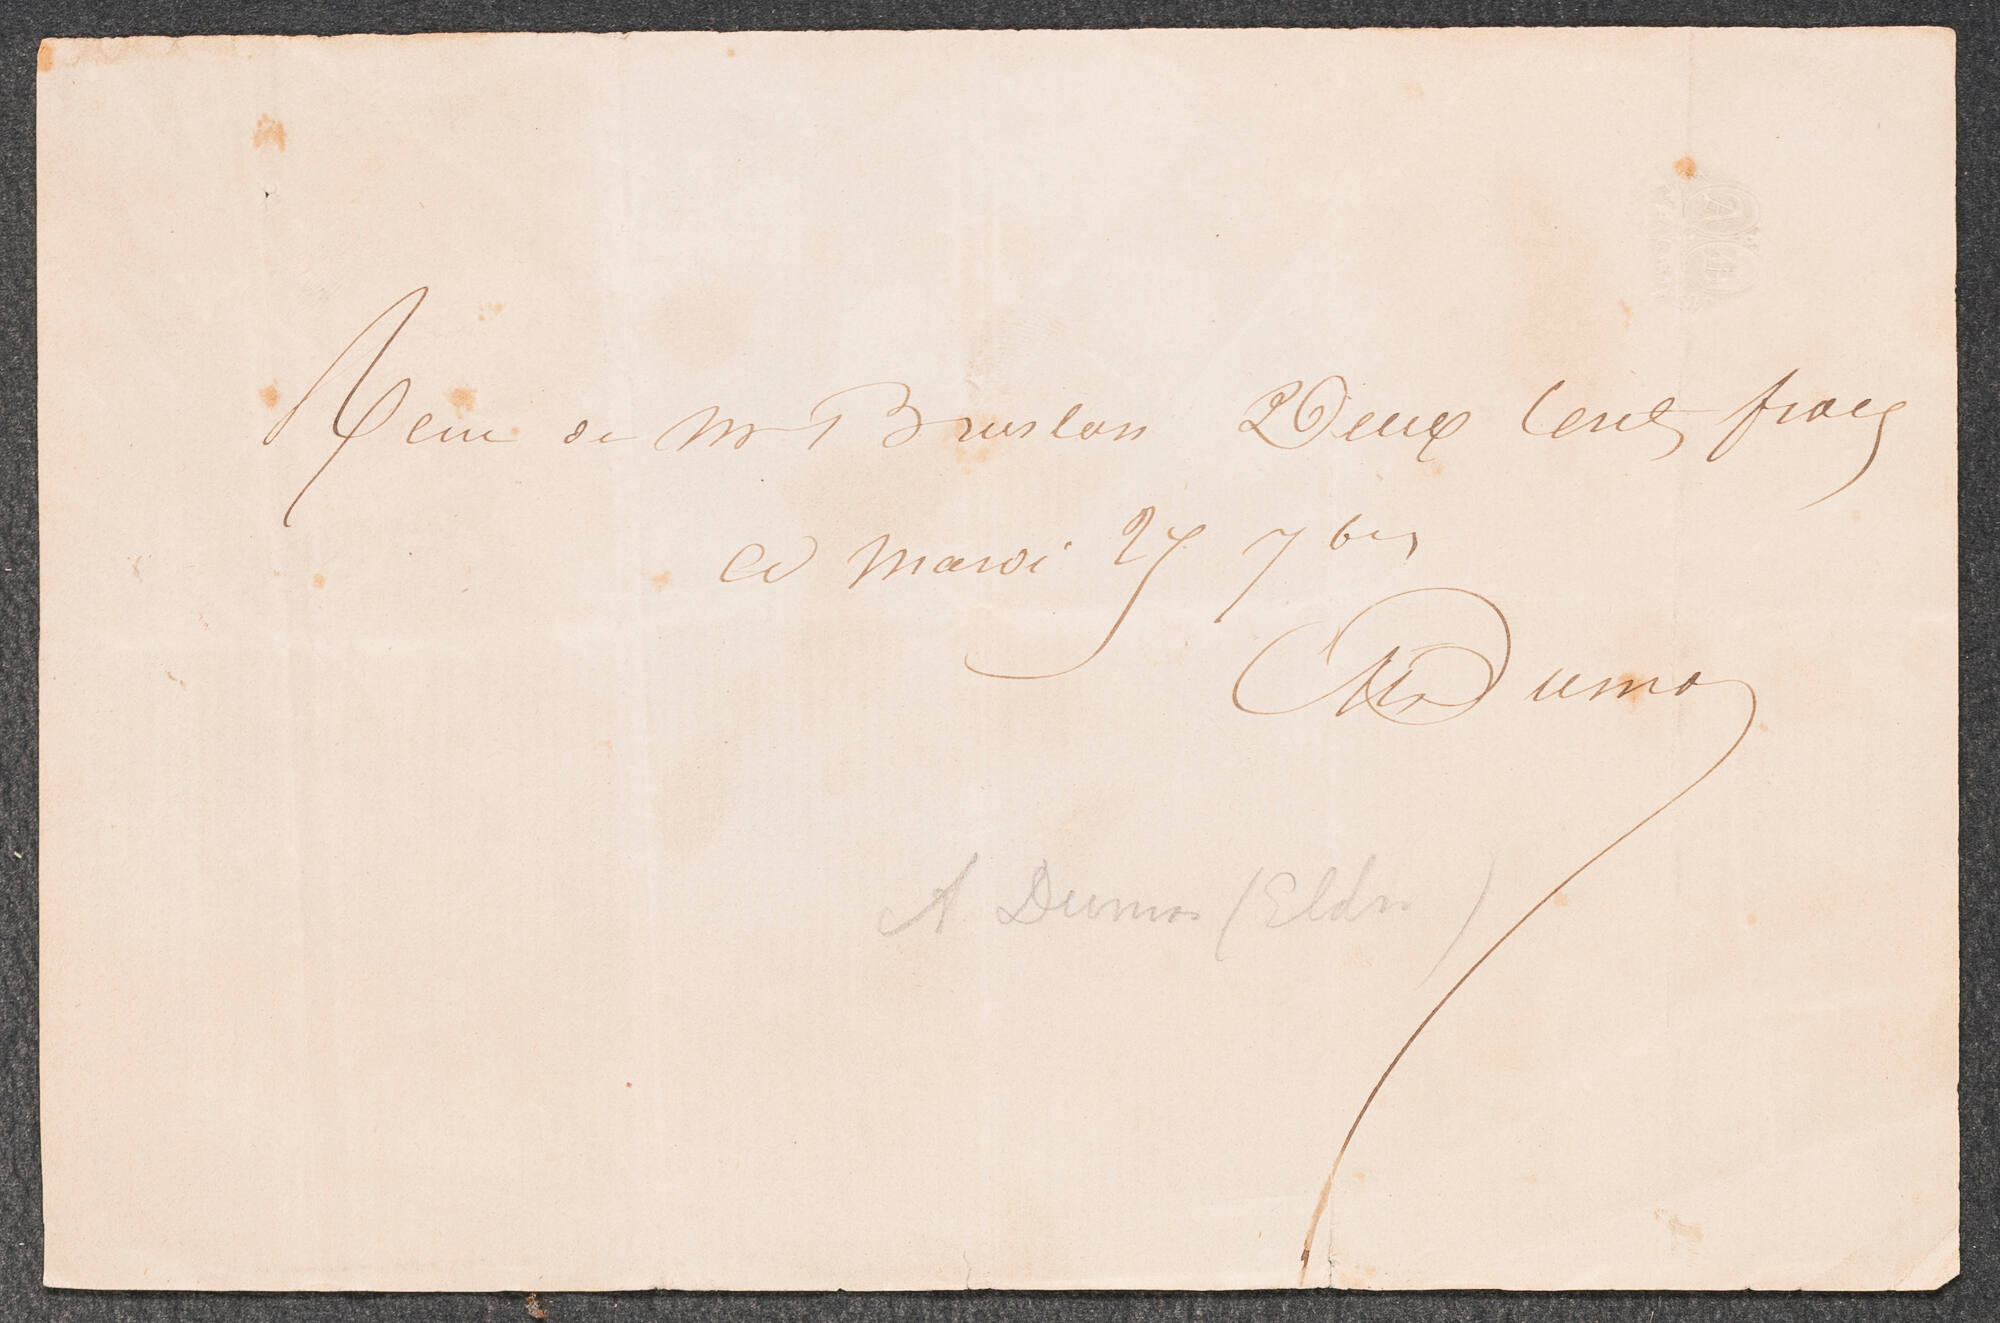 Recu de Mr Bruslon Deux Cent francs
Ce Mardi 27 7bre
Alex Dumas
A Dumas (Elder)